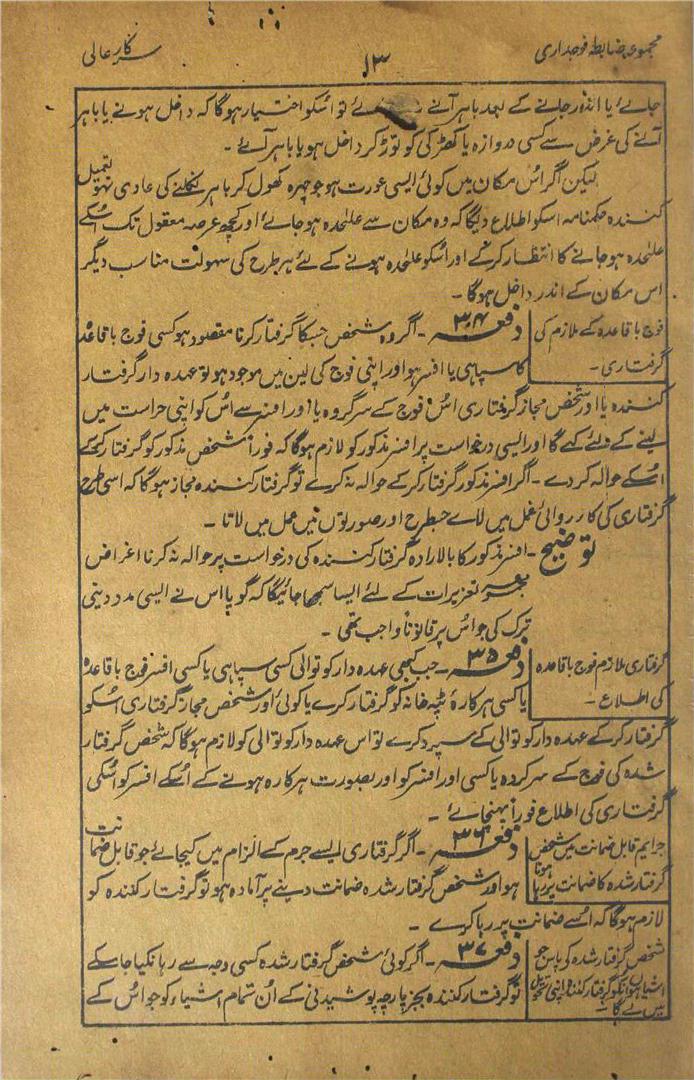 مجموعہ ضابطہ فوجداری
۱۳
سرکار عالی
جائے یا اندر جانے کے بعد باہر آنے نہ پائے تو اسکو اختیار ہوگا کہ داخل ہونے یا باہر
آنے کی غرض سے کسی دروازہ یا کھڑکی کو توڑ کر داخل ہو یا باہر آئے ۔
لیکن اگر اس مکان میں کوئی ایسی عورت ہو جو چہرہ کھول کر باہر نکلنے کی عادی نہو تعمیل
کنندہ حکمنامہ اسکو اطلاع دیگا کہ وہ مکان سے علٰحدہ ہو جائے اور کچھ عرصہ معقول تک اسکے
علٰحدہ ہو جانے کا انتظار کرکے اور اسکو علٰحدہ ہونے کے لئے ہر طرح کی سہولت مناسب دیکر
اس مکان کے اندر داخل ہوگا ۔
فوج باقاعدہ کے ملازم کی
گرفتاری ۔
دفعہ ۳۴ ۔ اگر وہ شخص جسکا گرفتار کرنا مقصود ہو کسی فوج باقاعدہ
کا سپاہی یا افسر ہو اور اپنی فوج کی لین میں موجود ہو تو عہدہ دار گرفتار
کنندہ یا اور شخص مجاز گرفتاری اس فوج کے سرگروہ یا اور افسر سے اس کو اپنی حراست میں
لینے کے لئے کہے گا اور ایسی درخواست پر افسر مذکور کو لازم ہوگا کہ فوراً شخص مذکور کو گرفتار کرکے
اسکے حوالہ کر دے ۔ اگر افسر مذکور گرفتار کرکے حوالہ نہ کرے تو گرفتار کنندہ مجاز ہوگا کہ اسی طرح
گرفتاری کی کارروائی عمل میں لائے جسطرح اور صورتوں میں عمل میں لاتا ۔
توضیح ۔ افسر مذکور کا بالارادہ گرفتار کنندہ کی درخواست پر حوالہ نہ کرنا اغراض
تعزیرات کے لئے ایسا سمجھا جائیگا کہ گویا اس نے ایسی مدد دینی
ترک کی جو اس پر قانوناً واجب تھی ۔
گرفتاری ملازم فوج باقاعدہ
کی اطلاع ۔
دفعہ ۳۵ ۔ جب کبھی عہدہ دار کوتوالی کسی سپاہی یا کسی افسر فوج باقاعدہ
یا کسی ہرکارۂ ٹپہ خانہ کو گرفتار کرے یا کوئی اور شخص مجاز گرفتاری اسکو
گرفتار کرکے عہدہ دار کوتوالی کے سپرد کرے تو اس عہدہ دار کوتوالی کو لازم ہوگا کہ شخص گرفتار
شدہ کی فوج کے سرکردہ یا کسی اور افسر کو اور بصورت ہرکارہ ہونے کے اسکے افسر کو اسکی
گرفتاری کی اطلاع فوراً پہنچائے ۔
جرایم قابل ضمانت میں شخص
گرفتار شدہ کا ضمانت پر رہا ہونا
دفعہ ۳۶ ۔ اگر گرفتاری ایسے جرم کے الزام میں کیجائے جو قابل ضمانت
ہو اور شخص گرفتار شدہ ضمانت دینے پر آمادہ ہو تو گرفتار کنندہ کو
لازم ہوگا کہ اسے ضمانت پر رہا کرے ۔
شخص گرفتار شدہ کو پاس جو
اشیا ہوں انکو گرفتار کنندہ اپنی تحویل
میں لے گا ۔
دفعہ ۳۷ ۔ اگر کوئی شخص گرفتار شدہ کسی وجہ سے رہا نکیا جاسکے
تو گرفتار کنندہ بجز پارچہ پوشیدنی کے ان تمام اشیاء کو جو اس کے